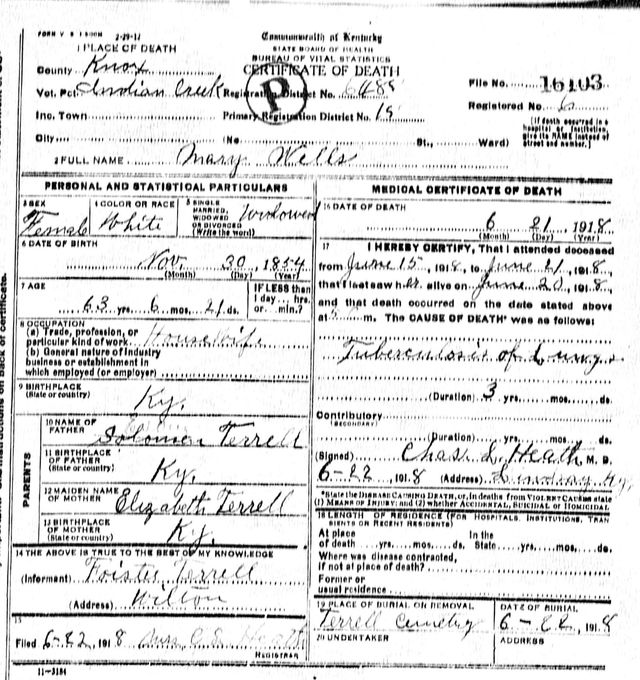 FORM V. S. 1 500M 2-29-17
Commonwealth of Kentucky
STATE BOARD OF HEALTH
BUREAU OF VITAL STATISTICS
CERTIFICATE OF DEATH
1 PLACE OF DEATH
County Knox
Vot. Pct. Indian Creek Registration District No. 6485
File No. 16103
Registered No. 6
Inc. Town Primary Registration District No. 15
(If death occurred in a hospital or institution, give its NAME instead of street and number.)
City (No St., Ward)
2 FULL NAME Mary Wells
P
PERSONAL AND STATISTICAL PARTICULARS
3 SEX Female
4 COLOR OR RACE White
5 SINGLE MARRIED, WIDOWED OR DIVORCED (Write the word) Widowed
6 DATE OF BIRTH
Nov. 30, 1854
(Month) (Day) (Year)
7 AGE
63 yrs. 6 mos. 21 ds.
IF LESS than 1 day... hrs. or... min.?
8 OCCUPATION
(a) Trade, profession, or particular kind of work Housewife
(b) General nature of industry business or establishment in which employed (or employer)
9 BIRTHPLACE
(State or country) Ky.
PARENTS
10 NAME OF FATHER Solomon Terrell
11 BIRTHPLACE OF FATHER
(State or country) Ky.
12 MAIDEN NAME OF MOTHER Elizabeth Terrell
13 BIRTHPLACE OF MOTHER
(State or country) Ky.
14 THE ABOVE IS TRUE TO THE BEST OF MY KNOWLEDGE
(Informant) Foister Terrell
(Address) Wilton
15
Filed 6-22, 1918 Mrs C L Heath
REGISTRAR
11-3184
MEDICAL CERTIFICATE OF DEATH
16 DATE OF DEATH
6 21, 1918
(Month) (Day) (Year)
17 I HEREBY CERTIFY, That I attended deceased
from June 15, 1918, to June 21, 1918,
that I last saw her alive on June 20, 1918,
and that death occurred on the date stated above
at 5 m. The CAUSE OF DEATH* was as follows:
Tuberculosis of Lungs
(Duration) 3 yrs. mos. ds.
Contributory
(SECONDARY)
(Duration) yrs. mos. ds.
(Signed) Chas. L. Heath, M. D.
6-22, 1918 (Address) Lindsay Ky.
*State the DISEASE CAUSING DEATH, or, in deaths from VIOLENT CAUSES state (1) MEANS OF INJURY; and (2) whether ACCIDENTAL, SUICIDAL or HOMICIDAL
18 LENGTH OF RESIDENCE (FOR HOSPITALS, INSTITUTIONS, TRANSIENTS OR RECENT RESIDENTS)
At place of death yrs. mos. ds. In the State yrs. mos. ds.
Where was disease contracted,
if not at place of death?
Former or
usual residence
19 PLACE OF BURIAL OR REMOVAL
Terrell Cemetery
DATE OF BURIAL
6-22, 1918
20 UNDERTAKER
ADDRESS